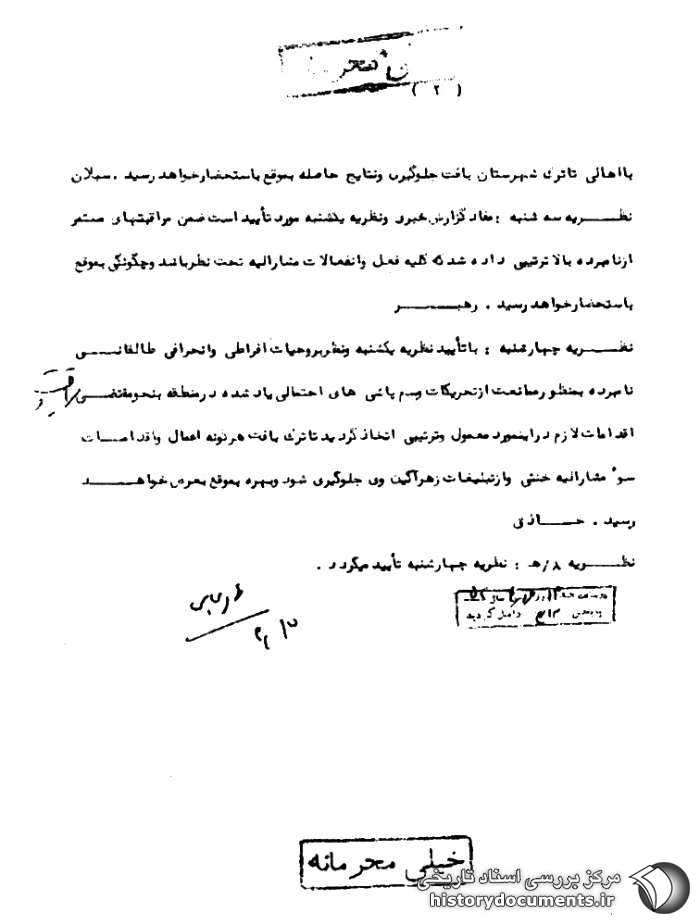 ( ٢ )
بااهالی تاترک شهرستان بافت جلوگیری ونتایج حاصله بموقع باستحضارخواهد رسید . سبلان
نظـــریه سه شنبه : مفاد گزارش خبری ونظریه یکشنبه مورد تأیید است ضمن مراقبتهای مستمر
ازنامبرده بالا ترتیبی داده شد که کلیه فعل وانفعالات مشارالیه تحت نظرباشد وچگونگی بموقع
باستحضارخواهد رسید . رهبـــــر
نظـــریه چهارشنبه : باتأیید نظریه یکشنبه ونظربروحیات افراطی وانحرافی طالقانـــی
نامبرده بمنظورممانعت ازتحریکات وسم پاشی های احتمالی یاد شده درمنطقه بنحومقتضـــی
اقدامات لازم دراینمورد معمول وترتیبی اتخاذ گردید تاترک بافت هرگونه اعمال واقدامـــات
سوء مشارالیه خنثی وازتبلیغات زهرآگین وی جلوگیری شود وبهره بموقع بعرض خواهـــد
رسید . حـــاذقی
نظـــریه ٨/هـ : نظریه چهارشنبه تأیید میگردد .
خیلی محرمانه
مرکز بررسی اسناد تاریخی
historydocuments.ir